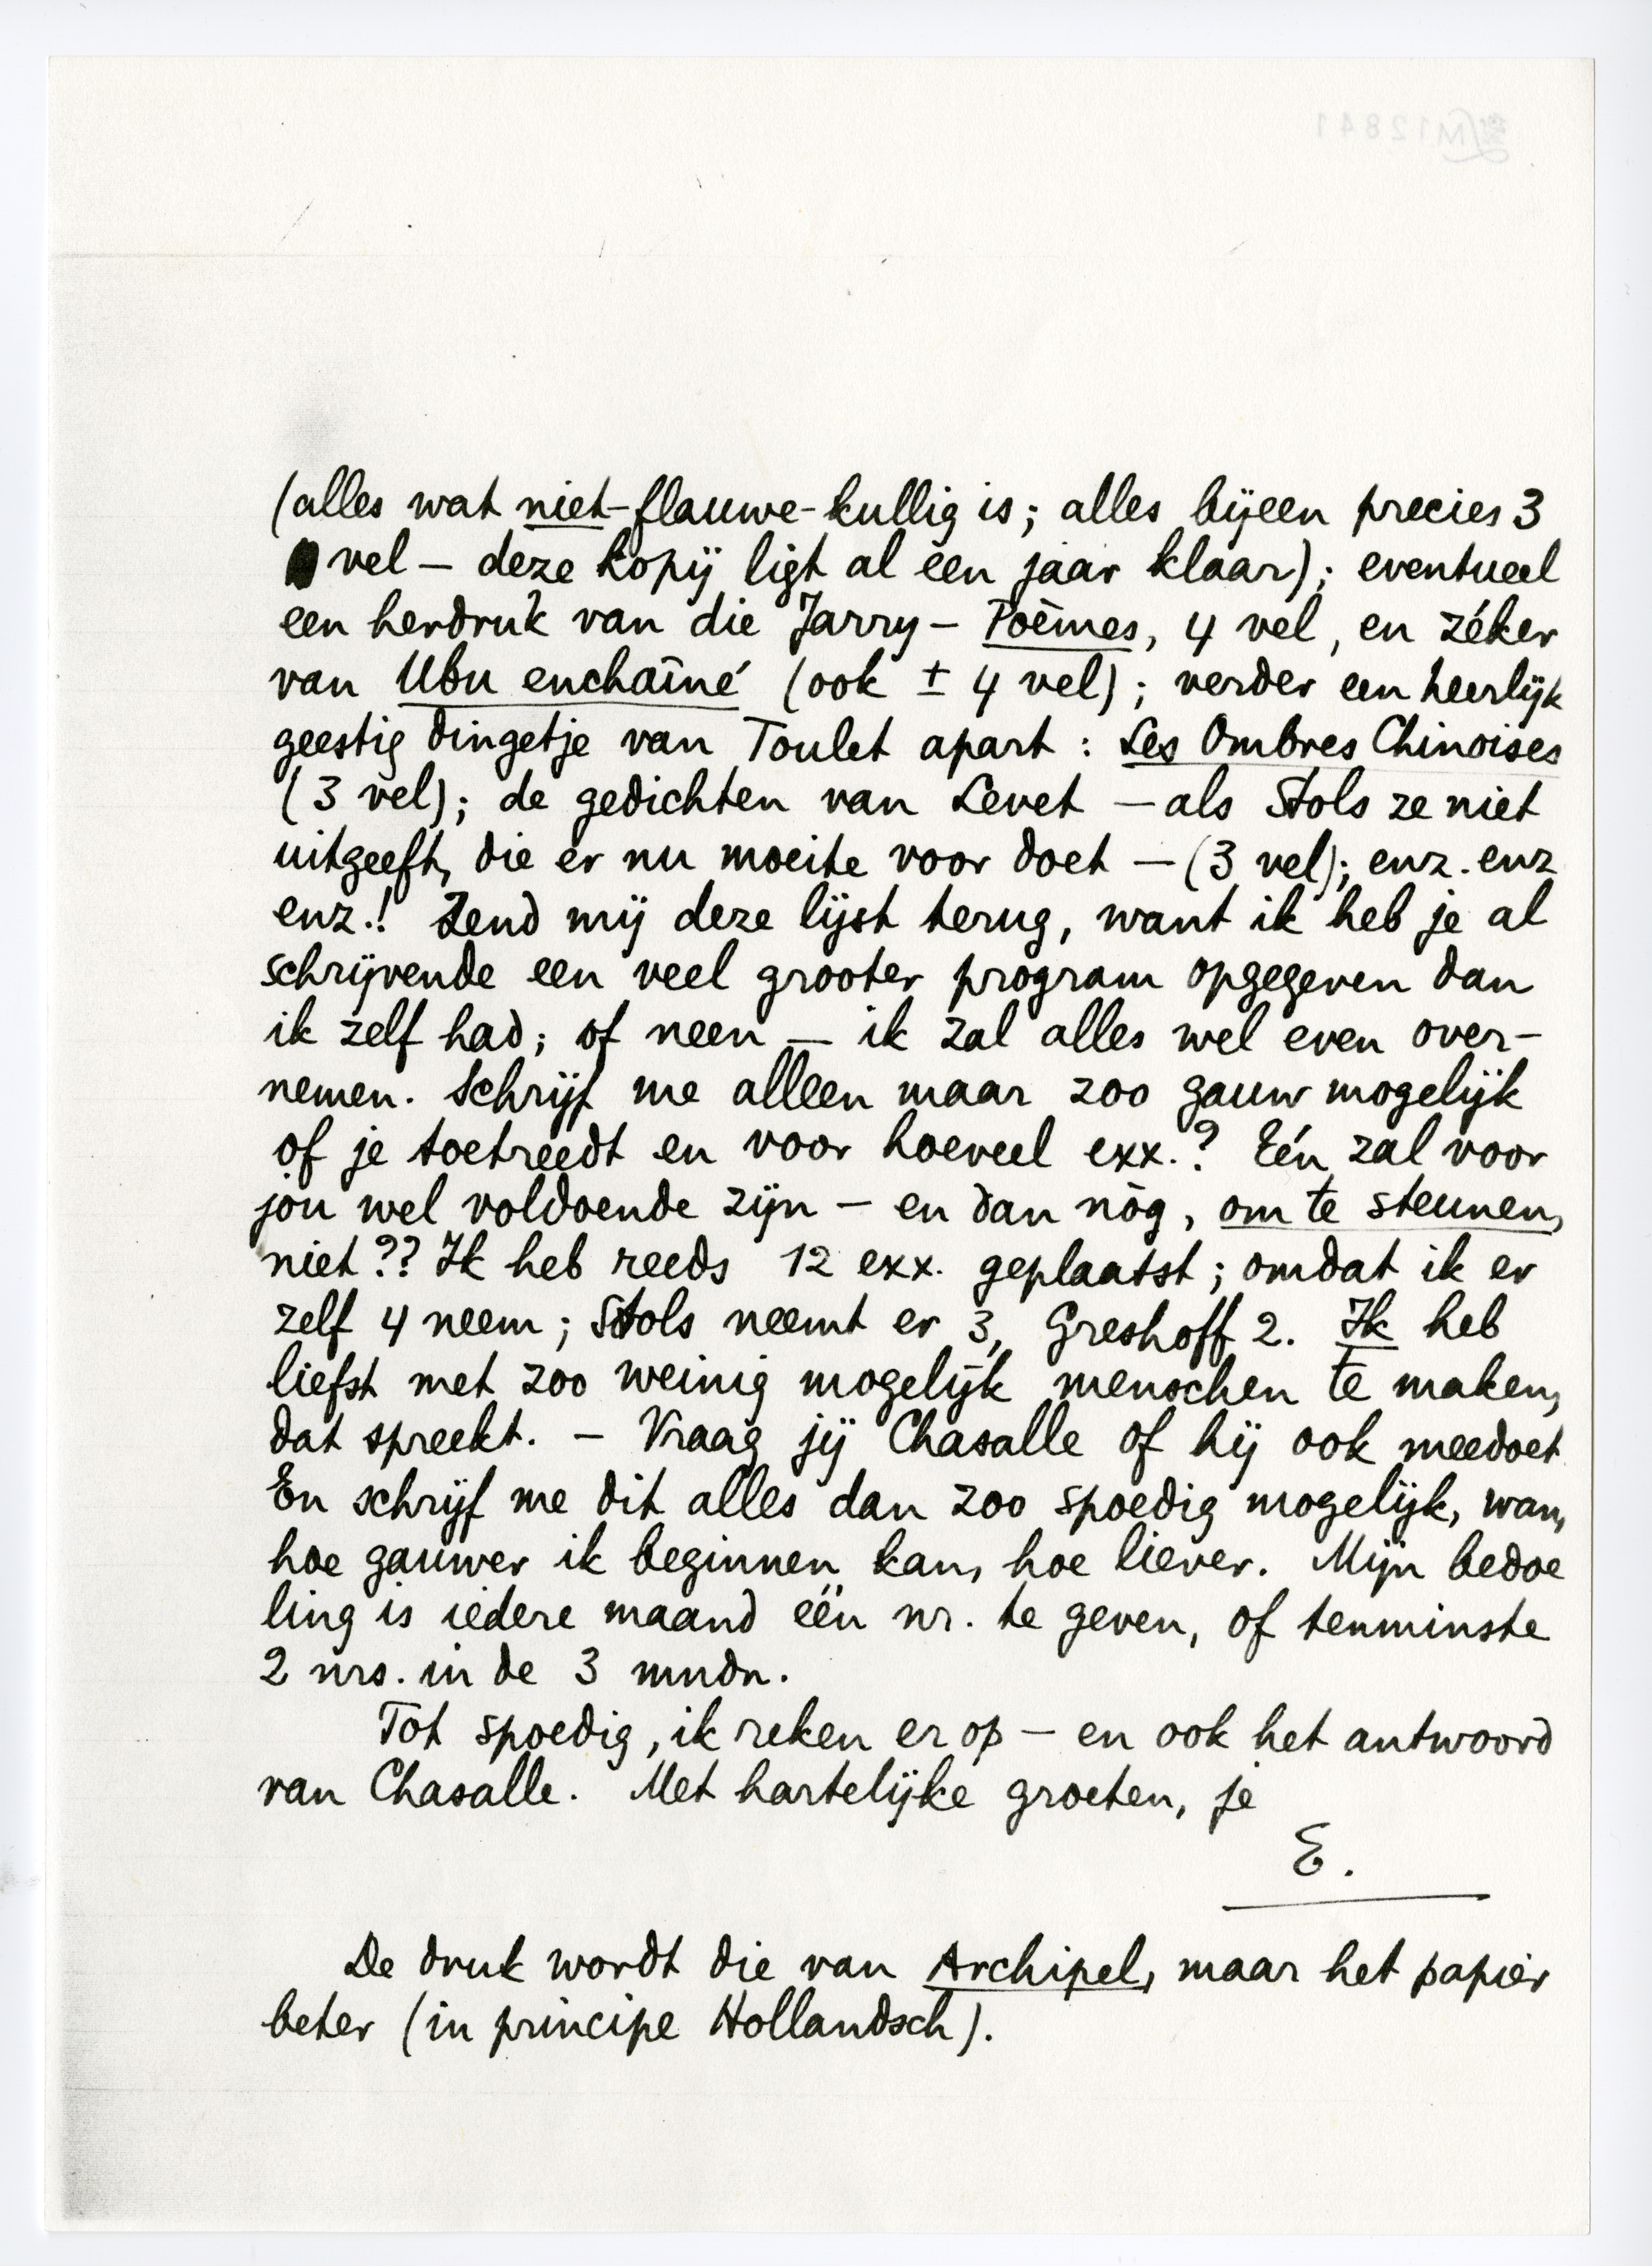 (alles wat niet-flauwe-kullig is; alles bijeen precies 3
vel – deze kopij ligt al een jaar klaar); eventueel
een herdruk van die Jarry – Poèmes, 4 vel, en zéker
van Ubu enchaîné (ook ± 4 vel); verder een heerlijk
geestig dingetje van Toulet apart: Les Ombres Chinoises
(3 vel); de gedichten van Levet – als Stols ze niet
uitgeeft, die er nu moeite voor doet – (3 vel); enz. enz
enz.! Zend mij deze lijst terug, want ik heb je al
schrijvende een veel grooter program opgegeven dan
ik zelf had; of neen – ik zal alles wel even over-
nemen. Schrijf me alleen maar zoo gauw mogelijk
of je toetreedt en voor hoeveel exx.? Eén zal voor
jou wel voldoende zijn – en dan nòg, om te steunen,
niet?? Ik heb reeds 12 exx. geplaatst; omdat ik er
zelf 4 neem; Stols neemt er 3, Greshoff 2. Ik heb
liefst met zoo weinig mogelijk menschen te maken,
dat spreekt. – Vraag jij Chasalle of hij ook meedoet
En schrijf me dit alles dan zoo spoedig mogelijk, wan,
hoe gauwer ik beginnen kan, hoe liever. Mijn bedoe
ling is iedere maand één nr. te geven, of tenminste
2 nrs. in de 3 mndn.
Tot spoedig, ik reken er op – en ook het antwoord
van Chasalle. Met hartelijke groeten, je
E.
De druk wordt die van Archipel, maar het papier
beter (in principe Hollandsch).